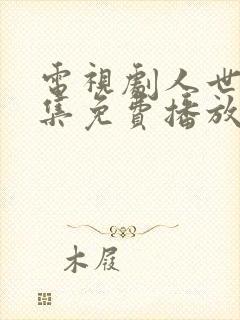 電視劇人世
集免費播放
木屐